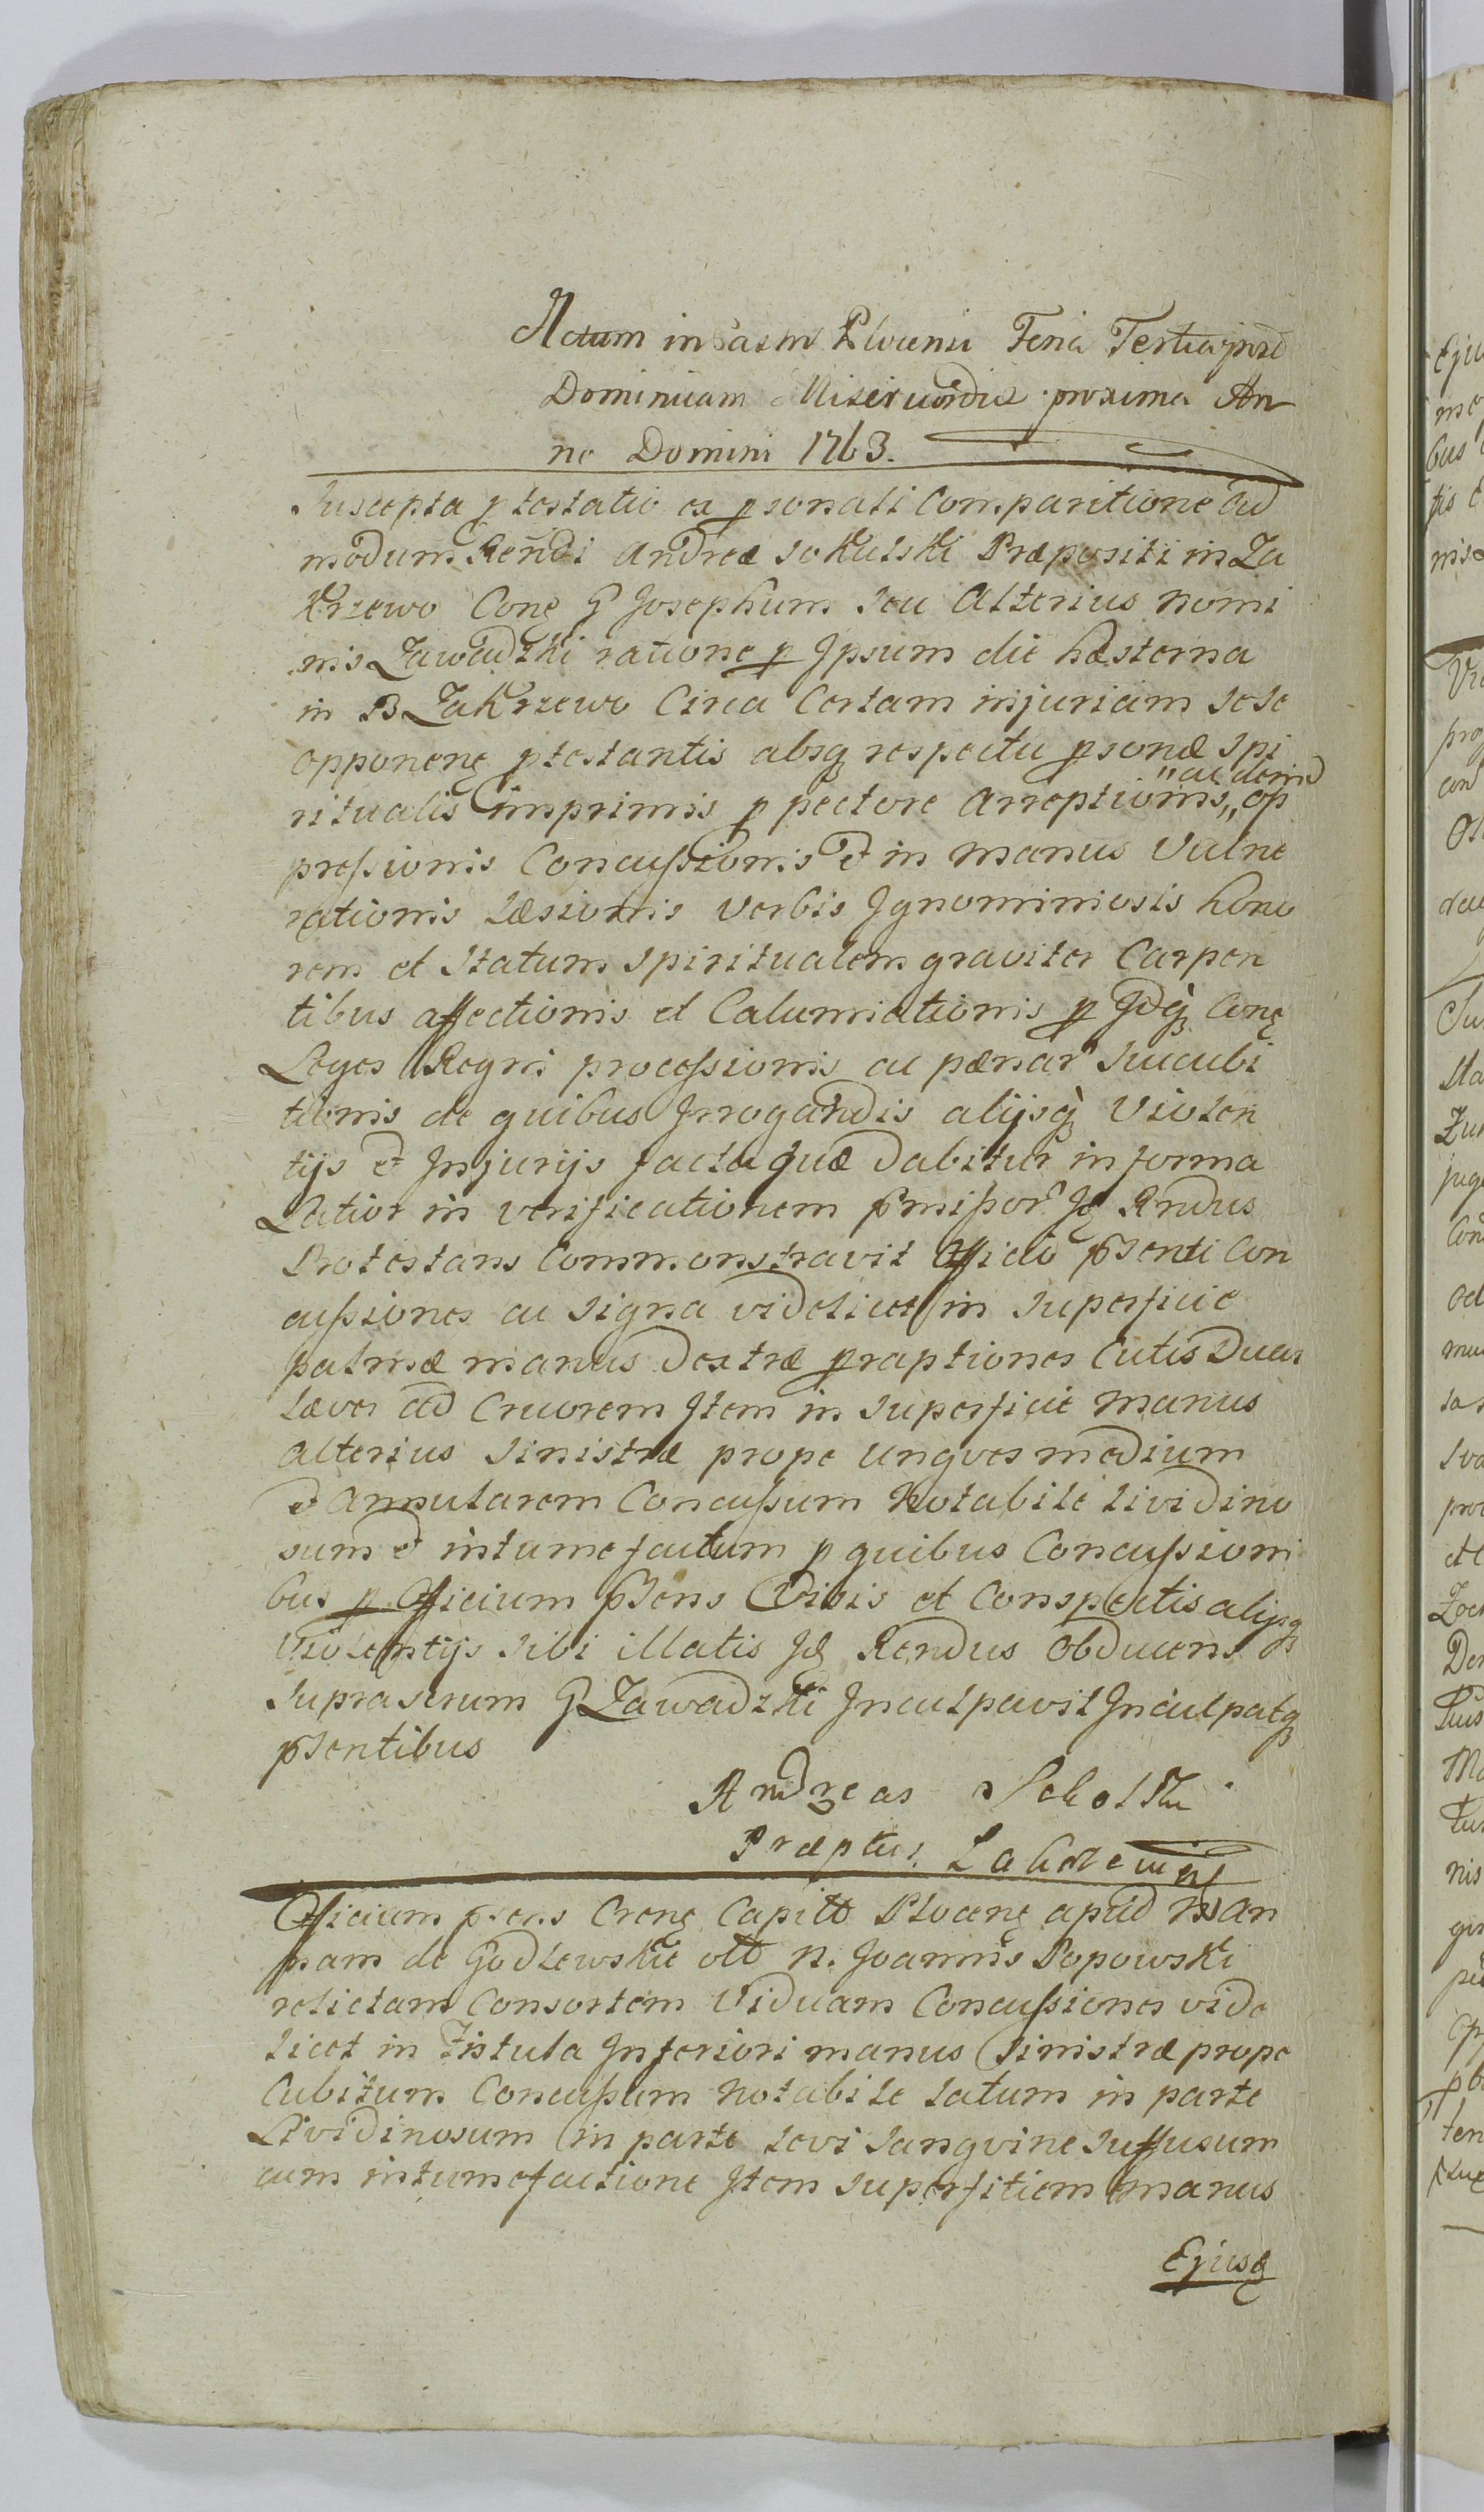 Actum in Castro Plocensi Feria Tertia post
Dominicam Misericordiae proxima An
no Domini 1763.
Suscepta ptestatio ex psonali Comparitione Ad
modum Rendi Andreæ Sokulski Præpositi in Za
krzewo Conę G Josephum seu Alterius nomi
nis Zawadzki ratione p Ipsum die hæsterna
in B Zakrzewo Circa Certam injuriam sese
opponenę ptestantis absq respectu psonæ Spi
ritualis imprimis p pectore Arreptionis,, op
"ac deind
pressionis Concussionis et in manus Vulne
rationis Læsionis verbis Ignominiosis hono
rem et Statum Spiritualem graviter Carpen
tibus affectionis et Calumniationis p Idq Conę
Leges Regni processionis ac pænar Succubi
tionis de quibus Irrogandis alijsq Violen
tijs et Injurijs facta quæ dabitur in forma
Latior in verificationem pmissor Id Rndus
Protestans Commonstravit Officio psenti Con
cussiones ac signa videlicet in Superficie
palmæ manus dextræ praptiones Cutis Duas
Læves ad Cruorem Item in superficie manus
alterius Sinistræ prope Ungves medium
et Annularem Concussum Notabile lividino
sum et intumefactum p quibus Concussioni
bus p Officium psens Visis et Conspectis alijsq
Violentijs sibi illatis Id Rendus Obducens
Suprascrum G Zawadzki Inculpavit Inculpatq
psentibus
Andreas
Præptus
Officium psens Crenę Capitt Plocenę apud N An
nam de Godlewskie olt N. Joannis Popowski
relictam Consortem Viduam Concussiones vide
licet in Fistula Inferiori manus Sinistræ prope
Cubitum Concussum Notabile latum in parte
Lividinosum in parte levi Sangvine Suffusum
cum intumefactione Item superfitiem manus
Ejusd